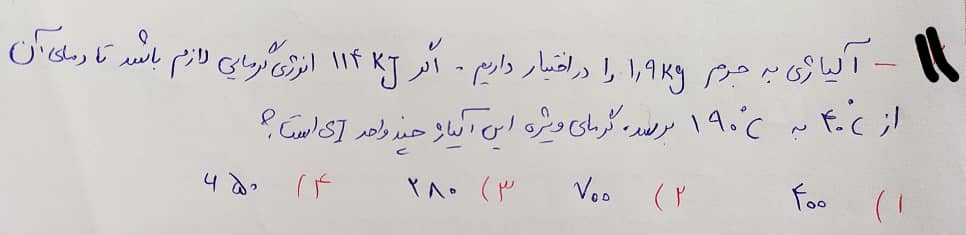 ۱۱ – آلیاژی به جرم ۱٫۹kg را در اختیار داریم. اگر ۱۱۴ kJ انرژی گرمایی لازم باشد تا دمای آن
از ۴۰°C به ۱۹۰°C برسد، گرمای ویژه این آلیاژ چند واحد SI است؟
۱) ۴۰۰ ۲) ۷۰۰ ۳) ۲۸۰ ۴) ۶۵۰